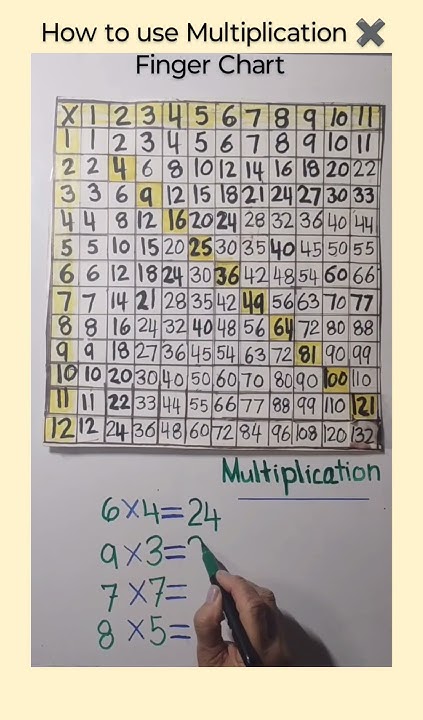 How to use Multiplication ✖
Finger Chart
X 1 2 3 4 5 6 7 8 9 10 11
1 1 2 3 4 5 6 7 8 9 10 11
2 2 4 6 8 10 12 14 16 18 20 22
3 3 6 9 12 15 18 21 24 27 30 33
4 4 8 12 16 20 24 28 32 36 40 44
5 5 10 15 20 25 30 35 40 45 50 55
6 6 12 18 24 30 36 42 48 54 60 66
7 7 14 21 28 35 42 49 56 63 70 77
8 8 16 24 32 40 48 56 64 72 80 88
9 9 18 27 36 45 54 63 72 81 90 99
10 10 20 30 40 50 60 70 80 90 100 110
11 11 22 33 44 55 66 77 88 99 110 121
12 12 24 36 48 60 72 84 96 108 120 132
Multiplication
6×4=24
9×3=
7×7=
8×5=